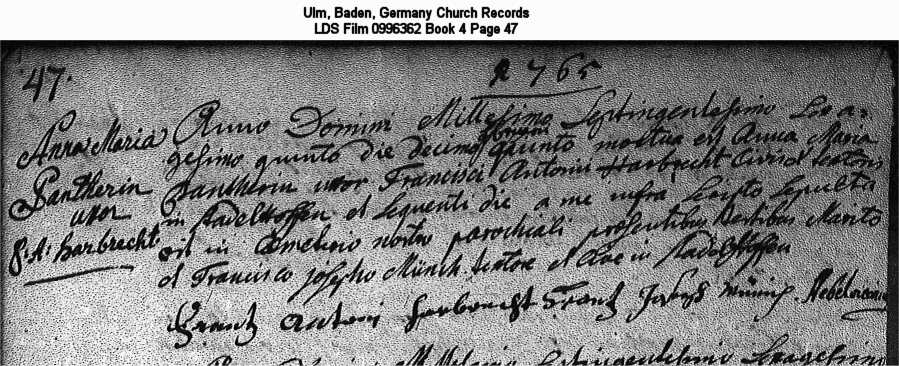 Ulm, Baden, Germany Church Records
LDS Film 0996362 Book 4 Page 47
47.
1765
Anna Maria
Pantherin
uxor
F: A: Harbrecht
Anno Domini Millesimo Septingentesimo Sexa-
gesimo quinto die decimo quinto mortua est Anna Maria
Pantherin uxor Francisci Antonii Harbrecht Civis textoris
in Stadelhoffen et sequenti die a me infra scripto sepulta
est in Cemeterio nostro parochiali presentibus testibus Marito
et Francisco josepho Münch textore et Cive in Stadelhoffen
Frantz Antoni Harbrecht Frantz